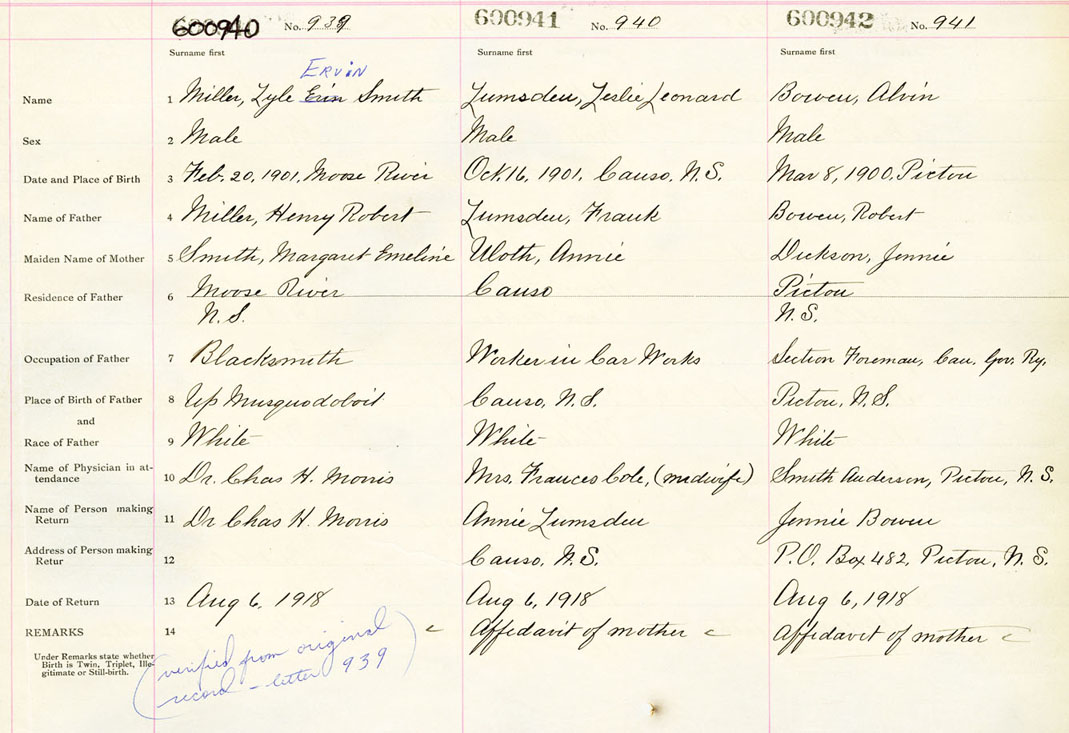 600940 No. 939 600941 No. 940 600942 No. 941
Surname first Surname first Surname first
Ervin
Name 1 Miller, Lyle Erin Smith Lumsden, Leslie Leonard Bowen, Alvin
Sex 2 Male Male Male
Date and Place of Birth 3 Feb. 20, 1901, Moose River Oct. 16, 1901, Canso, N.S. Mar 8, 1900, Pictou
Name of Father 4 Miller, Henry Robert Lumsden, Frank Bowen, Robert
Maiden Name of Mother 5 Smith, Margaret Emeline Uloth, Annie Dickson, Jennie
Residence of Father 6 Moose River Canso Pictou
N.S. N.S.
Occupation of Father 7 Blacksmith Worker in Car Works Section Foreman, Can. Gov. Ry.
Place of Birth of Father 8 Up Musquodoboit Canso, N.S. Pictou, N.S.
and
Race of Father 9 White White White
Name of Physician in at-
tendance 10 Dr. Chas H. Morris Mrs. Frances Cole, (midwife) Smith Anderson, Pictou, N.S.
Name of Person making
Return 11 Dr Chas H. Morris Annie Lumsden Jennie Bowen
Address of Person making
Retur 12 Canso, N.S. P.O. Box 482, Pictou, N.S.
Date of Return 13 Aug 6, 1918 Aug 6, 1918 Aug 6, 1918
REMARKS 14 c Affidavit of mother c Affidavit of mother c
Under Remarks state whether
Birth is Twin, Triplet, Ille-
gitimate or Still-birth.
(verified from original
record - letter 939)